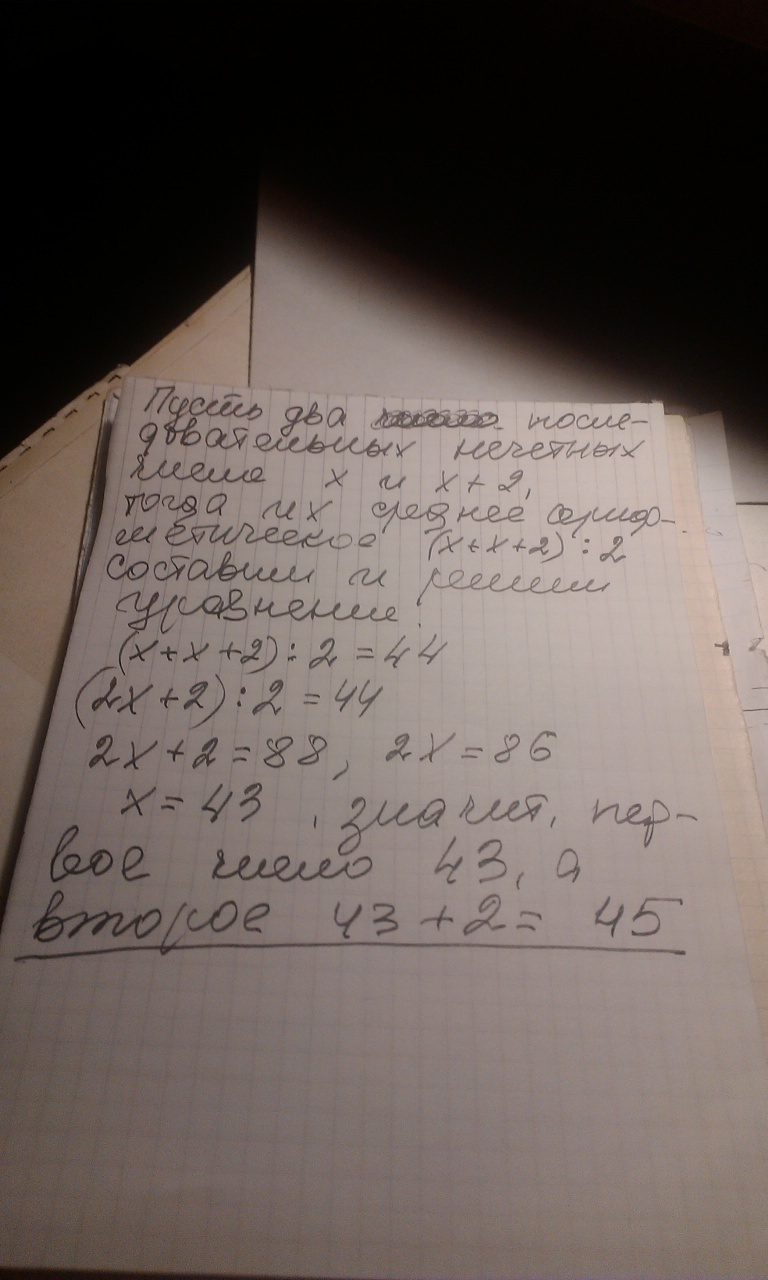 Пусть два после-
довательных нечетных
числа x и x + 2,
тогда их среднее ариф-
метическое (x+x+2) : 2
составим и решим
уравнение.
(x+x+2) : 2 = 44
(2x+2) : 2 = 44
2x+2=88, 2x=86
x=43, значит, пер-
вое число 43, а
второе 43+2= 45